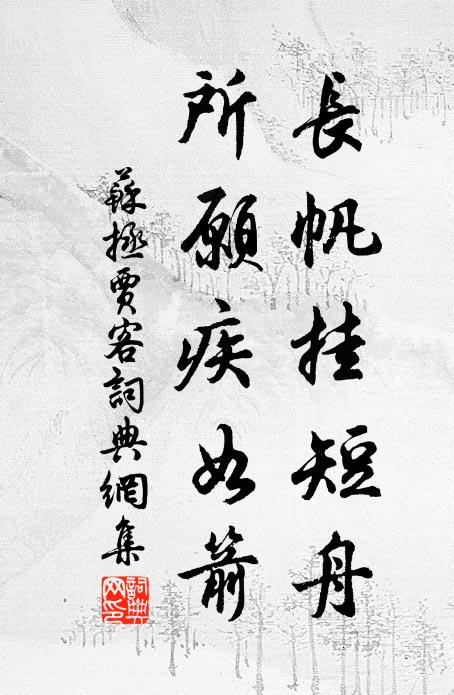 長帆挂短舟
所願疾如箭
蘇拯賈客詞典網集
詞典網印